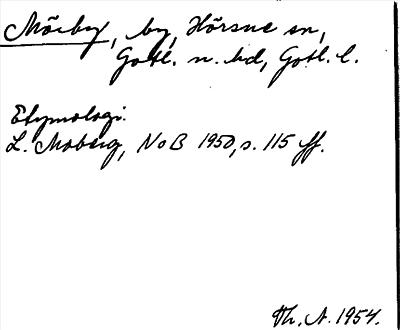 Mörby, by, Hörsne sn,
Gotl. n. hd, Gotl. l.
Etymologi:
L. Moberg, NoB 1950, s. 115 ff.
Th. A. 1954.